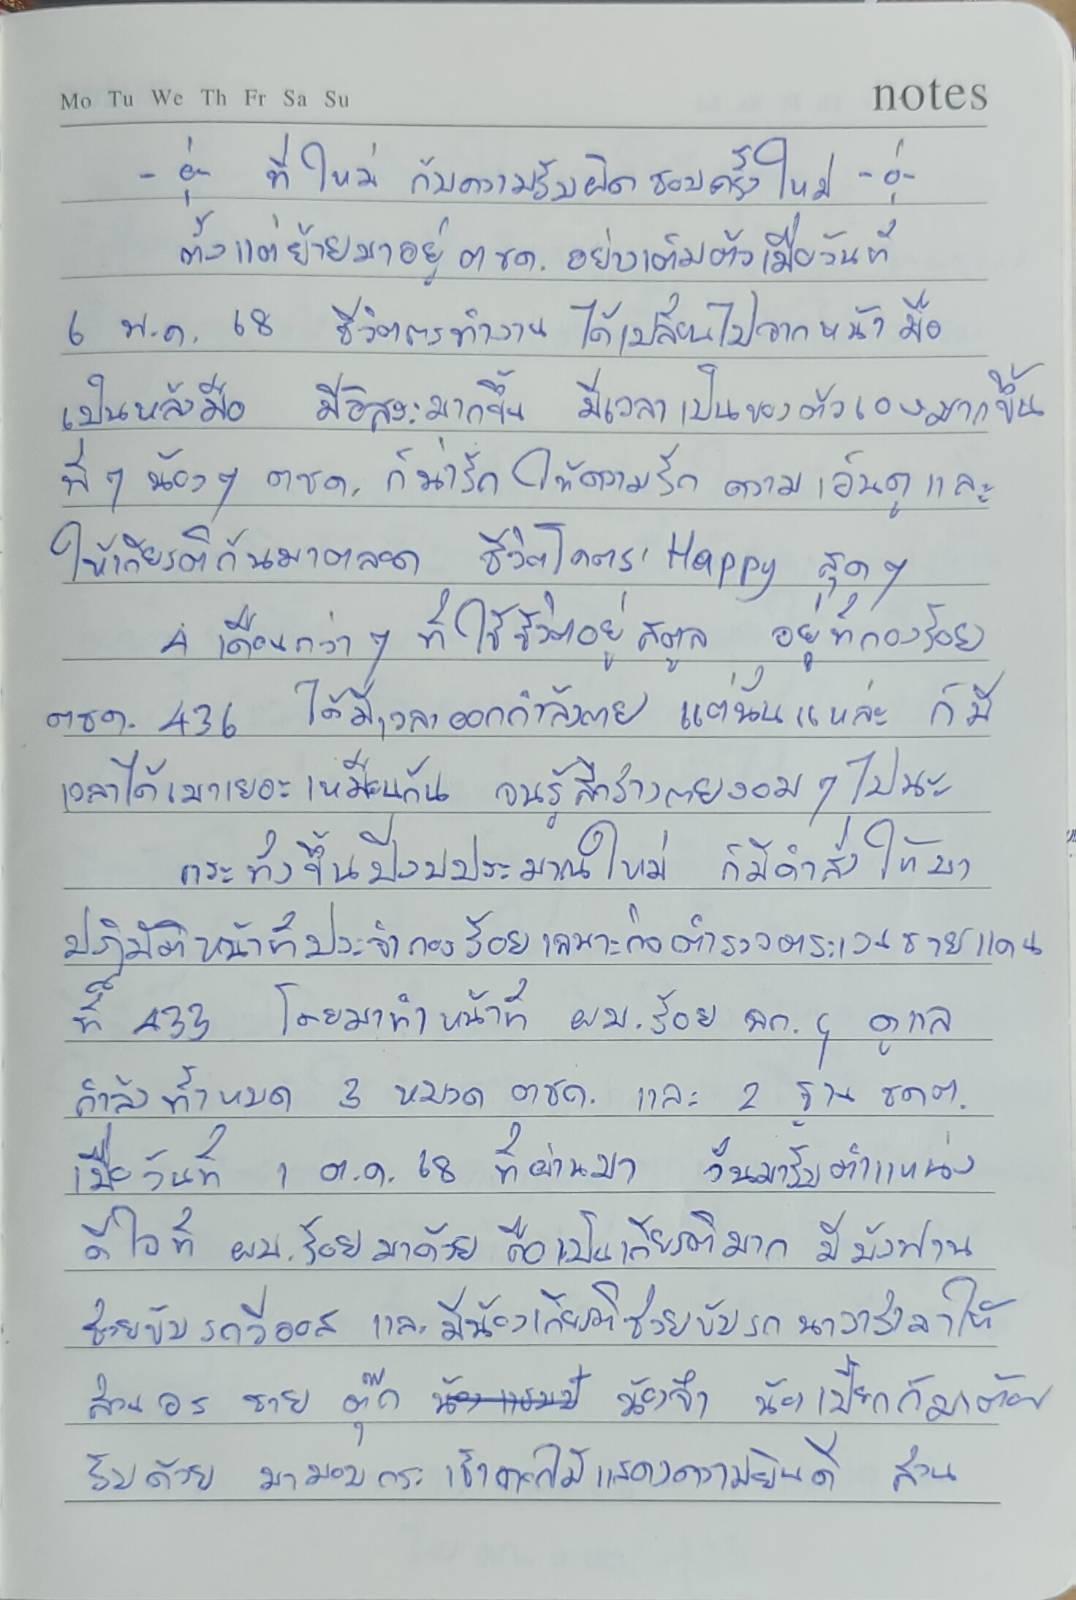 Mo Tu We Th Fr Sa Su
notes
ที่ใหม่ กับความรับผิดชอบครั้งใหม่
ตั้งแต่ย้ายมาอยู่ ตชด. อย่างเต็มตัวเมื่อวันที่
6 พ.ค. 68 ชีวิตการทำงาน ได้เปลี่ยนไปจากหน้ามือ
เป็นหลังมือ มีอิสระมากขึ้น มีเวลาเป็นของตัวเองมากขึ้น
พี่ๆ น้องๆ ตชด. ก็น่ารัก ให้ความรัก ความเอ็นดู และ
ให้เกียรติกันมาตลอด ชีวิตโคตร Happy สุดๆ
4 เดือนกว่าๆ ที่ใช้ชีวิตอยู่สตูล อยู่ที่กองร้อย
ตชด. 436 ได้มีเวลาออกกำลังกาย แต่นั่นแหล่ะ ก็มี
เวลาได้เมาเยอะเหมือนกัน จนรู้สึกร่างกายงอมๆ ไปนะ
กระทั่งขึ้นปีงบประมาณใหม่ ก็มีคำสั่งให้มา
ปฏิบัติหน้าที่ประจำกองร้อยเฉพาะกิจตำรวจตระเวนชายแดน
ที่ 433 โดยมาทำหน้าที่ ผบ.ร้อย ฉก.ฯ ดูแล
กำลังทั้งหมด 3 หมวด ตชด. และ 2 ฐาน ชคต.
เมื่อวันที่ 1 ต.ค. 68 ที่ผ่านมา วันมารับตำแหน่ง
ดีใจที่ ผบ.ร้อยมาด้วย ถือเป็นเกียรติมาก มีบังฟาน
ช่วยขับรถวีออส และมีน้องเกียรติช่วยขับรถนาวาร่ามาให้
ส่วน อร ชาย ตุ๊ก น้องจ๋า น้องเปี๊ยกก็มาต้อน
รับด้วย มามอบกระเช้าดอกไม้แสดงความยินดี ส่วน